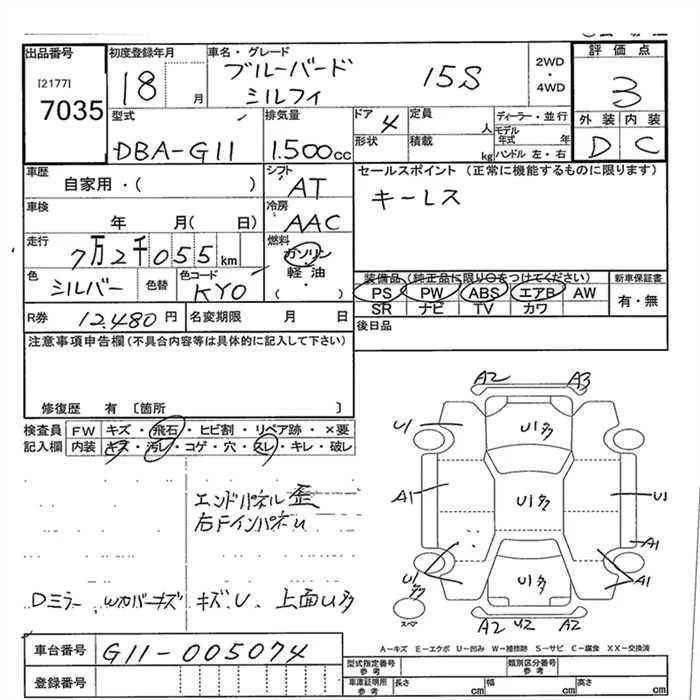 出品番号 初度登録年月 車名・グレード 評価点
[2177]
7035
18 月
ブルーバード
シルフィ
15S
2WD
・
4WD
3
外装 内装
D C
型式 排気量 ドア 定員 ディーラー・並行
DBA-G11 1.500cc 4 人 モデル年式 年
形状 積載 kg ハンドル 左・右
車歴 シフト セールスポイント(正常に機能するものに限ります)
自家用・( ) AT キーレス
車検 冷房
年 月( 日) AAC
走行 燃料
7万2千055km ガソリン
軽油
( ・ )
色 色替 色コード
シルバー KY0
装備品(純正品に限り○をつけてください) 新車保証書
PS PW ABS エアB AW 有・無
SR ナビ TV カワ
R券 12,480円 名変期限 月 日 後日品
注意事項申告欄(不具合内容等は具体的に記入して下さい)
修復歴 有 〔箇所 〕
検査員 FW キズ・飛石・ヒビ割・リペア跡・×要
記入欄 内装 キズ・汚レ・コゲ・穴・スレ・キレ・破レ
エンドパネル歪
右FインパネU
Dミラー Wカバーキズ キズU、上面U多
A2 A3
U1 U1多
A1 U1多 U1
A1
U1多 U1多 A1
スペア A2 U2 A2
A-キズ E-エクボ U-凹み W-補修跡 S-サビ C-腐食 XX-交換済
車台番号 G11-005074
登録番号
型式指定番号 参考 類別区分番号 参考
車庫証明用 参考 長さ cm 幅 cm 高さ cm